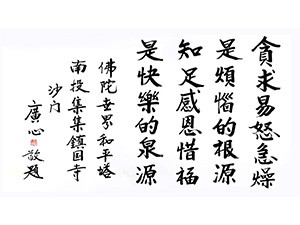 貪求易怒急燥
是煩惱的根源
知足感恩惜福
是快樂的泉源
佛陀世界和平塔
南投集集鎮国寺
沙門
廣心敬題